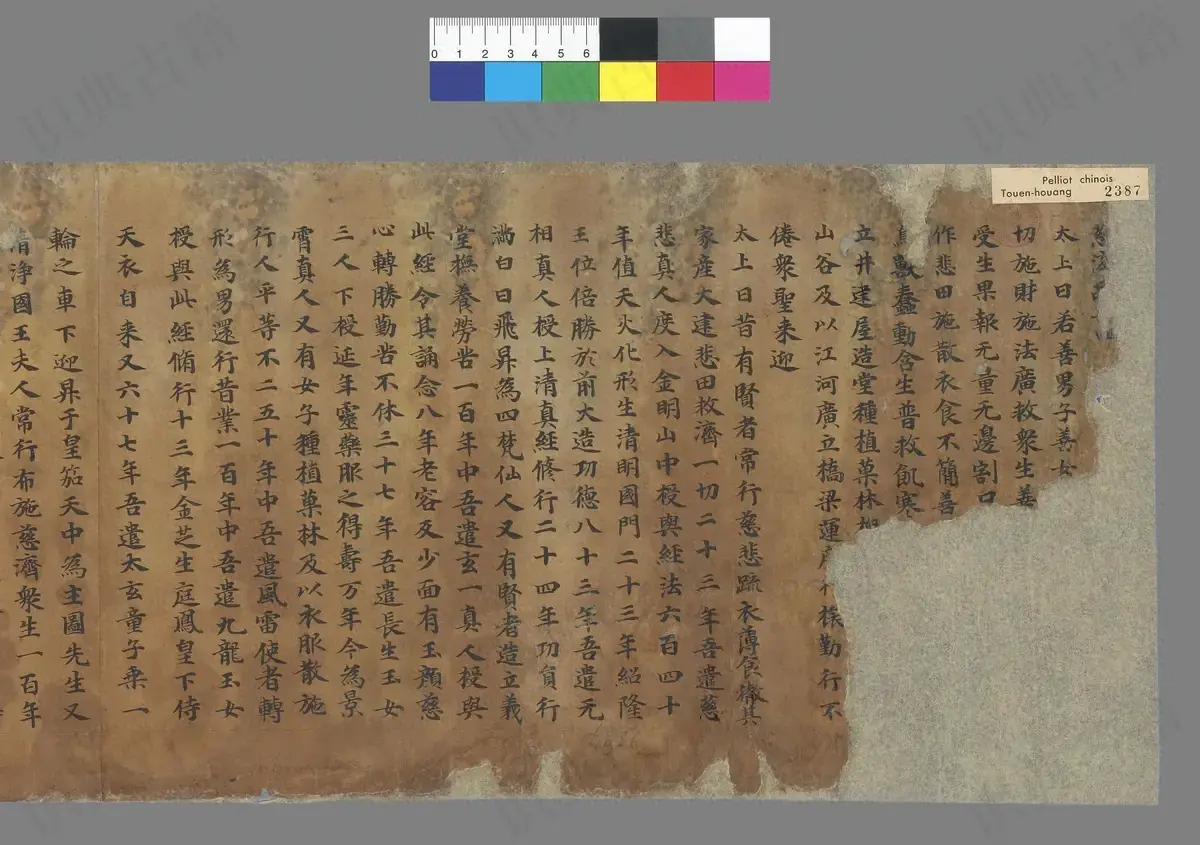 Pelliot chinois
Touen-houang 2387
0 1 2 3 4 5 6
慈濟
太上曰若善男子善女
切施財施法廣救衆生善
受生果報无量无邊割口
作悲田施散衣食不簡善
獸蠢動含生普救飢寒
立井建屋造堂種植菓林
山谷及以江河廣立橋梁運 勤行不
倦衆聖来迎
太上曰昔有賢者常行慈悲踈衣薄食 其
家產大建悲田救濟一切二十三年吾遣慈
悲真人度入金明山中授與經法六百四十
年值天火化形生清明國門二十三年紹隆
王位倍勝於前大造功德八十三年吾遣元
相真人授上清真經修行二十四年功負行
滿白日飛昇為四梵仙人又有賢者造立義
堂撫養勞苦一百年中吾遣玄一真人授與
此經令其誦念八年老容反少面有玉顏慈
心轉勝勤苦不休三十七年吾遣長生玉女
三人下授延年靈藥服之得壽万年今為景
霄真人又有女子種植菓林及以衣服散施
行人平等不二五十年中吾遣風雷使者轉
形為男還行昔業一百年中吾遣九龍玉女
授與此經脩行十三年金芝生庭鳳皇下侍
天衣自来又六十七年吾遣太玄童子乘一
輪之車下迎昇于皇笳天中為主圖先生又
清淨國王夫人常行布施慈濟衆生一百年